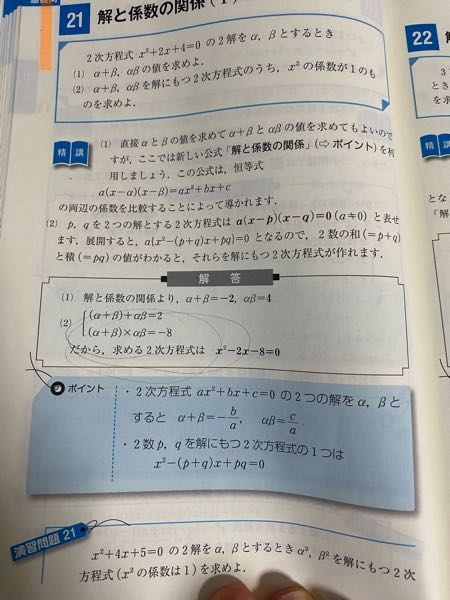 21 解と係数の関係(
2次方程式 x²+2x+4=0 の2解を α, β とするとき
(1) α+β, αβ の値を求めよ.
(2) α+β, αβ を解にもつ2次方程式のうち, x² の係数が1のも
のを求めよ.
精講
(1) 直接 α と β の値を求めて α+β と αβ の値を求めてもよいので
すが, ここでは新しい公式「解と係数の関係」(⇨ポイント)を利
用しましょう. この公式は, 恒等式
a(x−α)(x−β)=ax²+bx+c
の両辺の係数を比較することによって導かれます.
(2) p, q を2つの解とする2次方程式は a(x−p)(x−q)=0 (a≠0) と表せ
ます. 展開すると, a{x²−(p+q)x+pq}=0 となるので, 2数の和(=p+q)
と積(=pq)の値がわかると, それらを解にもつ2次方程式が作れます.
解答
(1) 解と係数の関係より, α+β=−2, αβ=4
(2) {(α+β)+αβ=2
(α+β)×αβ=−8
だから, 求める2次方程式は x²−2x−8=0
ポイント
・2次方程式 ax²+bx+c=0 の2つの解を α, β と
すると α+β=−b/a, αβ=c/a.
・2数 p, q を解にもつ2次方程式の1つは
x²−(p+q)x+pq=0
演習問題 21
x²+4x+5=0 の2解を α, β とするとき α², β² を解にもつ2次
方程式 (x² の係数は1)を求めよ.
22